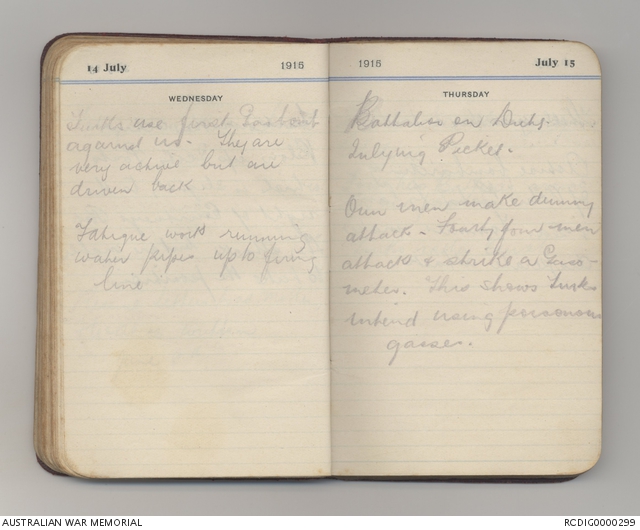 14 July 1915
WEDNESDAY
Turks use first Gas
against us. They are
very active but are
driven back
Fatigue work running
water pipes up to firing
line
1915 July 15
THURSDAY
Battalion on Duty.
Inlying Picket.
Our men make dummy
attack. Fourty four men
attack & strike a Gaso-
meter. This shows Turks
intend using poisonous
gasses.
AUSTRALIAN WAR MEMORIAL
RCDIG0000299